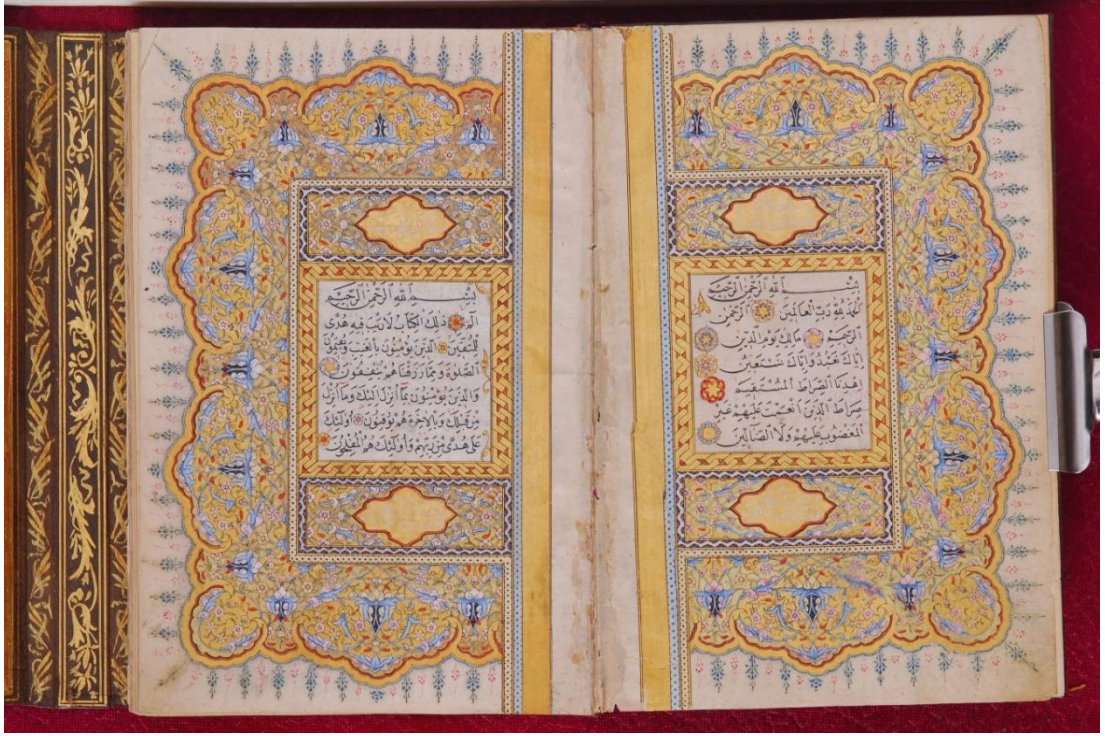 بِسْمِ اللّٰهِ الرَّحْمٰنِ الرَّحِيمِ
اَلْحَمْدُ لِلّٰهِ رَبِّ الْعَالَمِينَ الرَّحْمٰنِ
الرَّحِيمِ مَالِكِ يَوْمِ الدِّينِ
اِيَّاكَ نَعْبُدُ وَاِيَّاكَ نَسْتَعِينُ
اِهْدِنَا الصِّرَاطَ الْمُسْتَقِيمَ
صِرَاطَ الَّذِينَ اَنْعَمْتَ عَلَيْهِمْ غَيْرِ
الْمَغْضُوبِ عَلَيْهِمْ وَلَا الضَّالِّينَ
بِسْمِ اللّٰهِ الرَّحْمٰنِ الرَّحِيمِ
الٓمٓ ذٰلِكَ الْكِتَابُ لَا رَيْبَ فِيهِ هُدًى
لِلْمُتَّقِينَ الَّذِينَ يُؤْمِنُونَ بِالْغَيْبِ وَيُقِيمُونَ
الصَّلٰوةَ وَمِمَّا رَزَقْنَاهُمْ يُنْفِقُونَ
وَالَّذِينَ يُؤْمِنُونَ بِمَا اُنْزِلَ اِلَيْكَ وَمَا اُنْزِلَ
مِنْ قَبْلِكَ وَبِالْاٰخِرَةِ هُمْ يُوقِنُونَ اُولٰئِكَ
عَلٰى هُدًى مِنْ رَبِّهِمْ وَاُولٰئِكَ هُمُ الْمُفْلِحُونَ